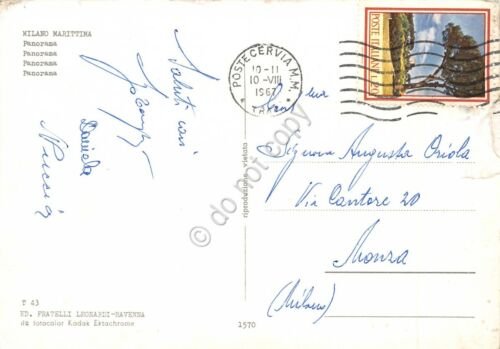 MILANO MARITTIMA
Panorama
Panorama
Panorama
Panorama
Saluti cari
Daniela
Nuccia
T 43
ED. FRATELLI LEONARDI-RAVENNA
da fotocolor Kodak Ektachrome
1570
riproduzione vietata
do not copy
POSTE CERVIA M.M.
10-11
10-VIII
1967
POSTE ITALIANE L. 20
Signora Augusta Oriola
Via Cantore 20
Monza
(Milano)